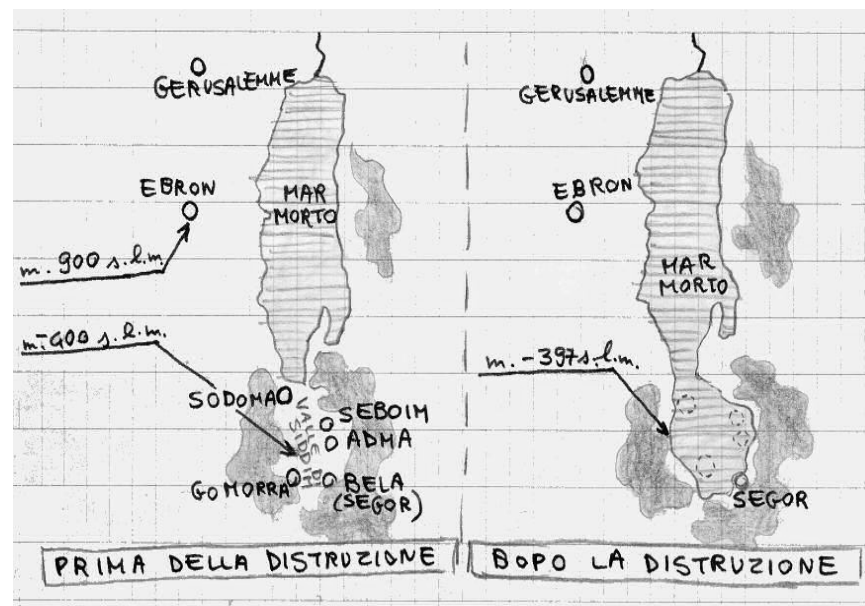 GERUSALEMME
EBRON
MAR
MORTO
m. 900 s.l.m.
m.-400 s.l.m.
SODOMA
VALLE DI
SIDDIM
SEBOIM
ADMA
GOMORRA
BELA
(SEGOR)
PRIMA DELLA DISTRUZIONE
GERUSALEMME
EBRON
MAR
MORTO
m. -397 s.l.m.
SEGOR
BOPO LA DISTRUZIONE